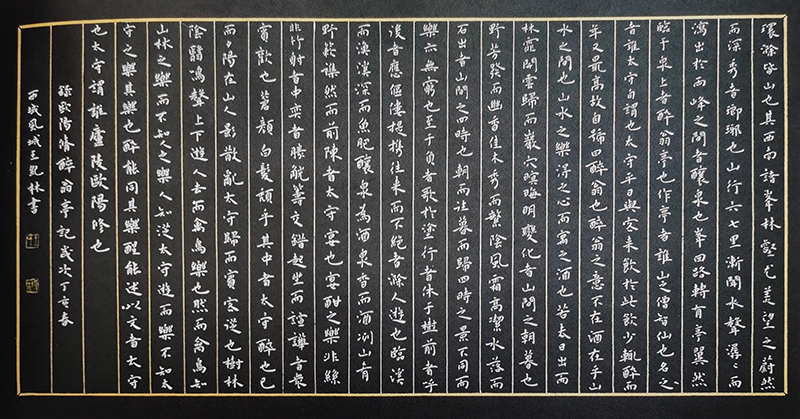 環滁皆山也其西南諸峯林壑尤美望之蔚然
而深秀者瑯琊也山行六七里漸聞水聲潺〻而
瀉出於兩峰之間者釀泉也峯回路轉有亭翼然
臨于泉上者醉翁亭也作亭者誰山之僧智仙也名之
者誰太守自謂也太守与客来飲於此飲少輒醉而
年又最高故自號曰醉翁也醉翁之意不在酒在乎山
水之間也山水之樂得之心而寓之酒也若夫日出而
林霏開雲歸而巖穴暝晦明變化者山間之朝暮也
野芳發而幽香佳木秀而繁陰風霜高潔水落而
石出者山間之四時也朝而往暮而歸四時之景不同而
樂亦無窮也至于負者歌於塗行者休于樹前者呼
後者應傴僂提攜往来而不絕者滁人遊也臨溪
而漁溪深而魚肥釀泉為酒泉香而酒洌山肴
野蔌雜然而前陳者太守宴也宴酣之樂非絲
非竹射者中奕者勝觥籌交錯起坐而諠譁者衆
賓歡也蒼顏白髮頹乎其中者太守醉也已
而夕陽在山人影散亂太守歸而賓客從也樹林
陰翳鳴聲上下遊人去而禽鳥樂也然而禽鳥知
山林之樂而不知人之樂人知從太守遊而樂不知太
守之樂其樂也醉能同其樂醒能述以文者太守
也太守謂誰廬陵歐陽修也
錄歐陽脩醉翁亭記歲次丁亥春
西域風城王林書